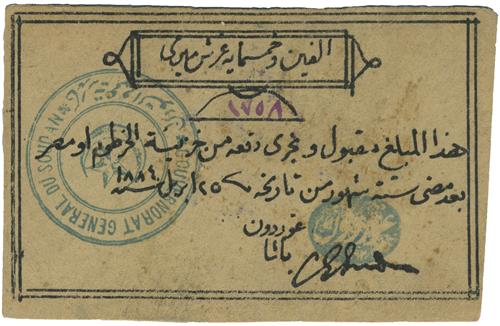 الفين وخمسماية غرش ميري
١٧٥٨
هذا المبلغ مقبول ويجرى دفعه من خزينة الخرطوم او مصر
بعد مضى ستة شهور من تاريخه ٢٥ ابريل سنة ١٨٨٤
غوردون
باشا
GOUVERNORAT GENERAL DU SOUDAN